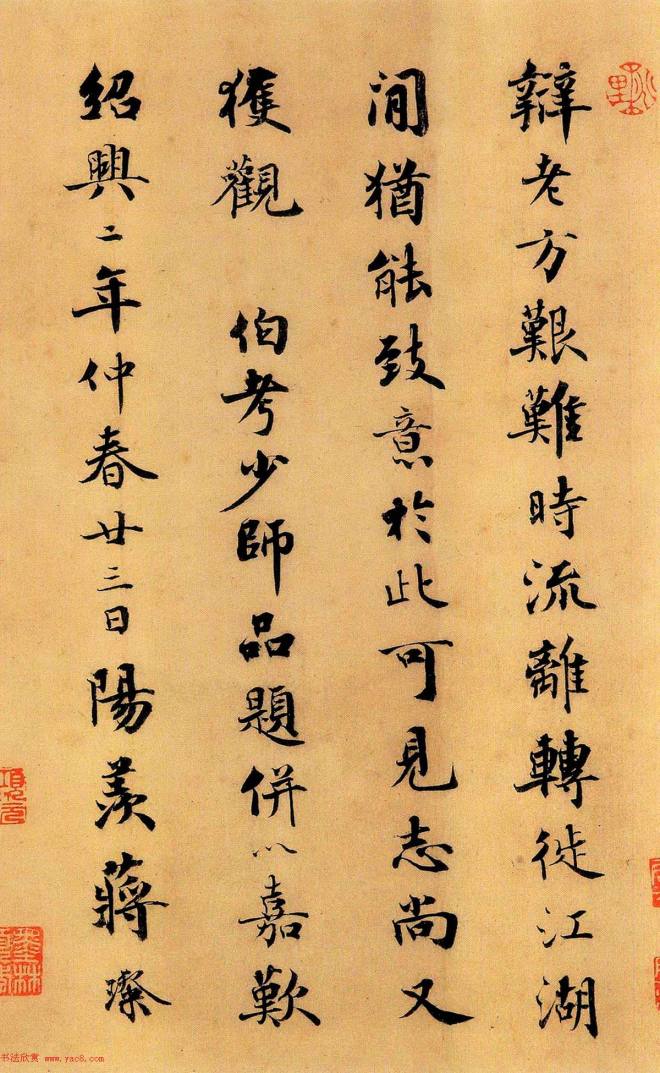 辯老方艱難時流離轉徙江湖
間猶能致意於此可見志尚又
獲觀 伯考少師品題併以嘉歎
紹興二年仲春廿三日陽羨蔣璨
书法欣赏 www.yac8.com